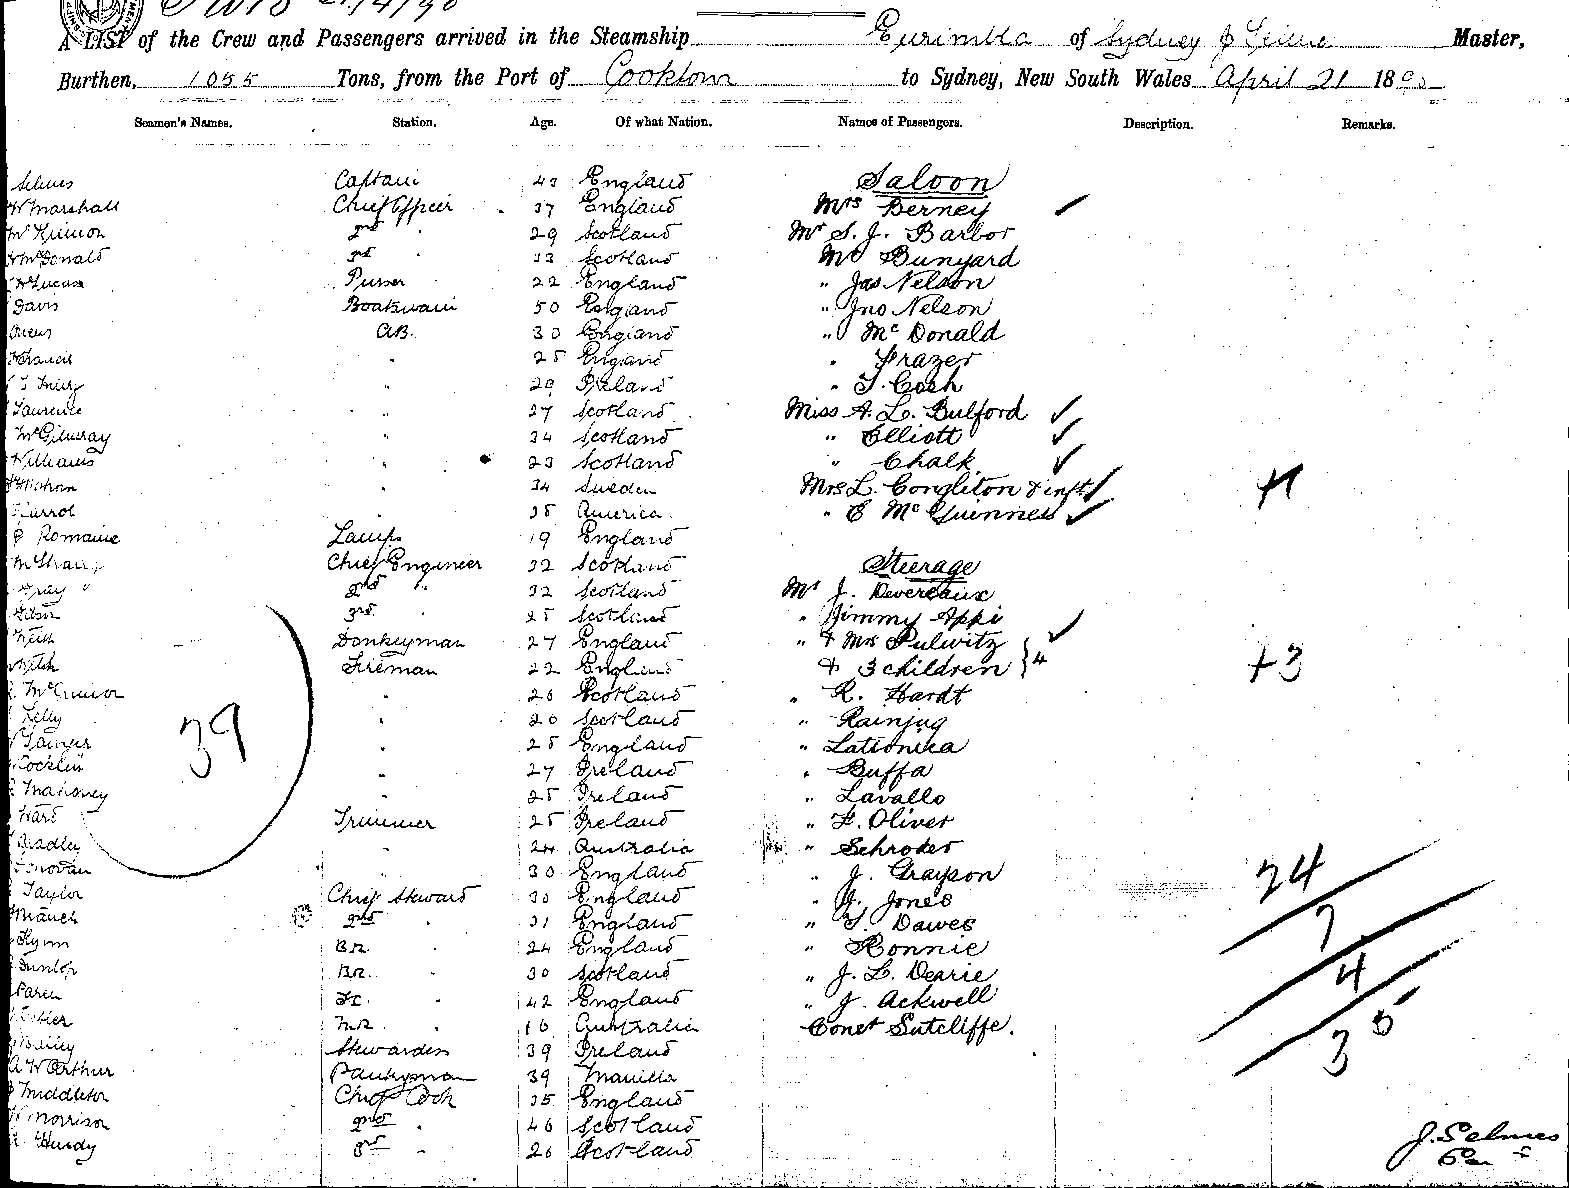 A LIST of the Crew and Passengers arrived in the Steamship Eurimbla of Sydney J Selmes Master,
Burthen, 1055 Tons, from the Port of Cooktown to Sydney, New South Wales April 21 1890
Seamen's Names. Station. Age. Of what Nation. Names of Passengers. Description. Remarks.
Selmes Captain 43 England Saloon
W Marshall Chief Officer 37 England Mrs Berney
2nd " 29 Scotland Mr S. J. Barbor
McDonald 3rd " 33 Scotland Mr Bunyard
Lucas Purser 22 England " Jas Nelson
Davis Boatswain 50 England " Jno Nelson
Owens A.B. 30 England " Mc Donald
Francis " 25 England " Frazer
" 29 Ireland " T. Cosh
Laurence " 27 Scotland Miss A. L. Bulford
McGilvray " 34 Scotland " Elliott
Williams " 23 Scotland " Chalk
" 34 Sweden Mrs L. Congliton & inft
Carrol " 35 America " E McGuinness
Romaine Lamps 19 England
Chief Engineer 32 Scotland Steerage
Gray 2nd " 32 Scotland Mr J. Devereaux
3rd " 25 Scotland " Jimmy Appi
Keith Donkeyman 27 England " & Mrs Pulwitz
Fireman 22 England & 3 children } 4 +3
" 26 Scotland " R. Hardt
Kelly " 20 Scotland " Rainjug
39
" 25 England " Lationica
Cocklin " 27 Ireland " Buffa
Mahoney " 25 Ireland " Lavallo
Ward Trimmer 25 Ireland " F. Oliver
Bradley " 24 Australia " Schroder
Donovan " 30 England " J. Grayson
24
Taylor Chief Steward 30 England " J. Jones
2nd " 31 England " T. Dawes
7
Flynn BR " 24 England " Ronnie
Dunlop BR. " 30 Scotland " J. L. Dearie
4
42 England " J. Ackwell
" 16 Australia Const Sutcliffe.
35
Bailey Stewardess 39 Ireland
A W Arthur Pantryman 39 Manilla
Middleton Chief Cook 35 England
Morrison 2nd " 46 Scotland
3rd " 26 Scotland
J. Selmes